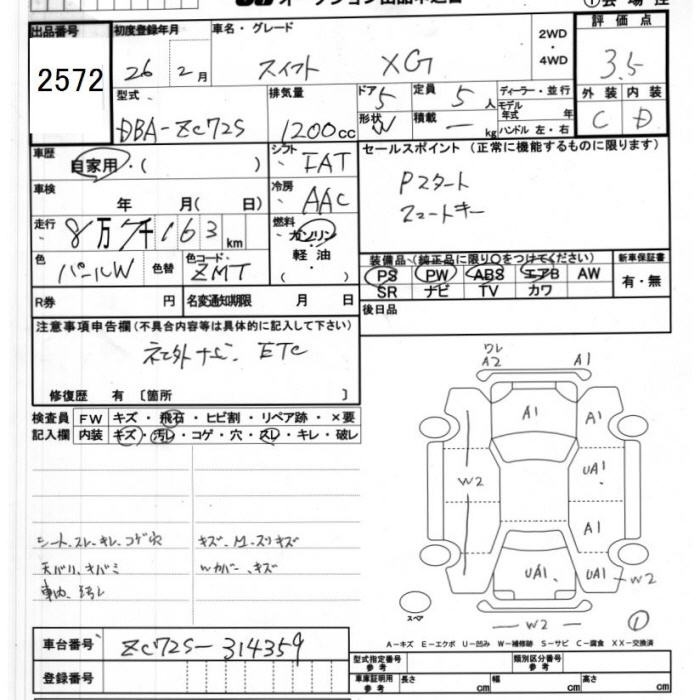 オークション出品申込書
①会場控
出品番号
2572
初度登録年月
26 2月
車名・グレード
スイフト XG
2WD
・
4WD
評価点
3.5
外装 内装
C D
型式
DBA-ZC72S
排気量
1200cc
ドア 5
形状 W
定員 5人
積載 ー kg
ディーラー・並行
モデル年式 年
ハンドル 左・右
車歴
自家用・( )
シフト
FAT
セールスポイント(正常に機能するものに限ります)
Pスタート
スマートキー
車検 年 月( 日)
冷房
AAC
走行
8万7千163km
燃料
ガソリン
・
軽油
( )
色 パールW 色替
色コード
ZMT
装備品(純正品に限り○をつけてください)
PS PW ABS エアB AW
SR ナビ TV カワ
新車保証書
有・無
R券 円 名変通知期限 月 日
後日品
注意事項申告欄(不具合内容等は具体的に記入して下さい)
社外ナビ. ETC
修復歴 有 〔箇所 〕
検査員
記入欄
FW キズ・飛石・ヒビ割・リペア跡・×要
内装 キズ・汚レ・コゲ・穴・スレ・キレ・破レ
シート.スレ.キレ.コゲ穴
天バリ.キバミ
車内.汚レ
キズ.M.スリキズ
Wカバー.キズ
ワレ
A2 A1
A1 A1
UA1
W2
A1
UA1 UA1 W2
W2
①
スペア
A-キズ E-エクボ U-凹み W-補修跡 S-サビ C-腐食 XX-交換済
車台番号 ZC72S-314359
登録番号
型式指定番号
参考
類別区分番号
参考
車庫証明用
参考
長さ cm 幅 cm 高さ cm